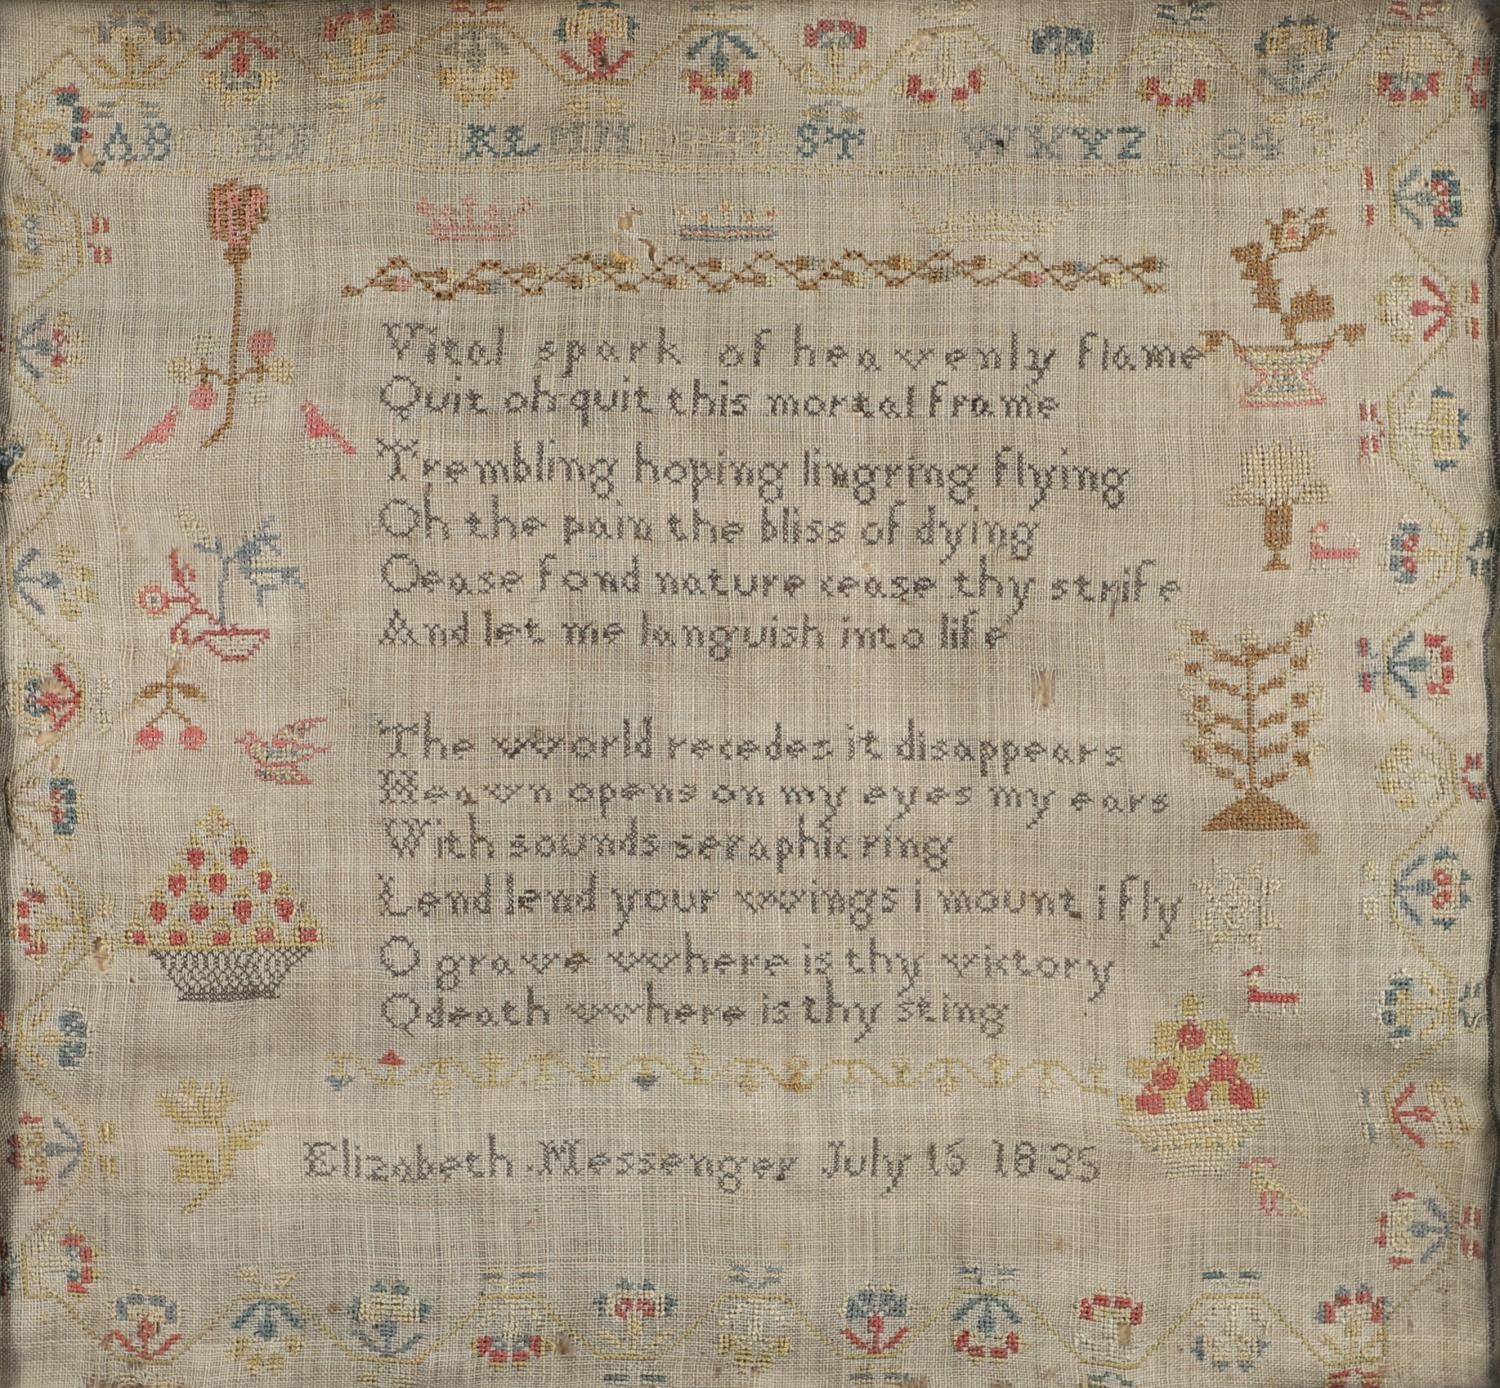 AB EF KLMN ST WXYZ 34
Vital spark of heavenly flame
Quit oh quit this mortal frame
Trembling hoping lingring flying
Oh the pain the bliss of dying
Cease fond nature cease thy strife
And let me languish into life
The world recedes it disappears
Heavn opens on my eyes my ears
With sounds seraphic ring
Lend lend your wings i mount i fly
O grave where is thy victory
O death where is thy sting
Elizabeth Messenger July 15 1835